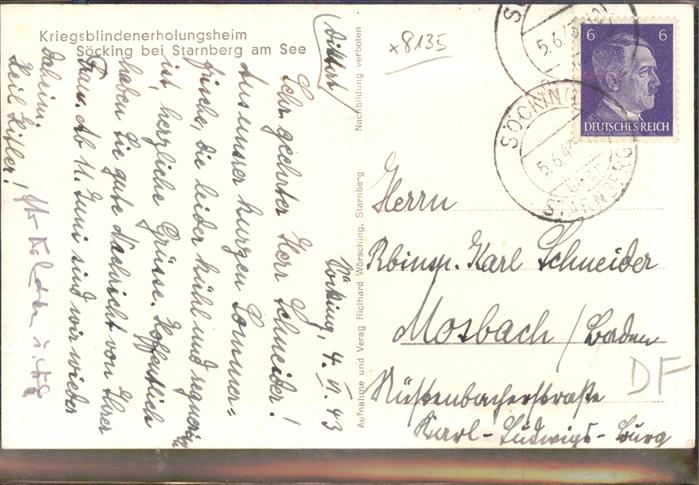 Kriegsblindenerholungsheim
Söcking bei Starnberg am See
(diktiert)
x8135
Söcking, 4. VI. 43
Sehr geehrter Herr Schneider!
Aus unsrer kurzen Sommer-
frische, die leider kühl und regnerisch
ist, herzliche Grüsse. Hoffentlich
haben Sie gute Nachricht von Ihrer
Frau. Ab 11. Juni sind wir wieder
daheim.
Heil Hitler!
Nachbildung verboten
Aufnahme und Verag Richard Wörsching, Starnberg
6 6
DEUTSCHES REICH
SÖCKING
STARNBERG
Herrn
Rbinsp. Karl Schneider
Mosbach/Baden
Nüstenbacherstraße
Karl-Ludwigs-Burg
DF